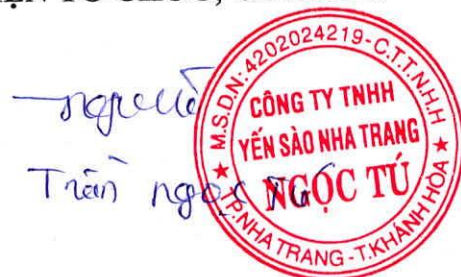 M.S.D.N: 4202024219-C.T.T.N.H.H
CÔNG TY TNHH
YẾN SÀO NHA TRANG
NGỌC TÚ
TP.NHA TRANG - T.KHÁNH HÒA
Trần ngọc Tú